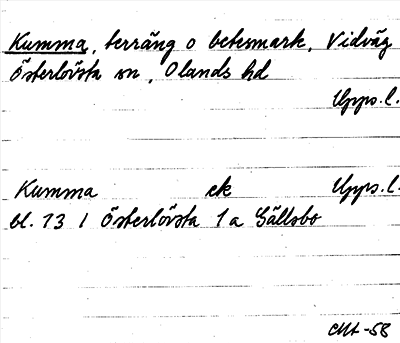 Kumma, terräng o betesmark, Vidväg
Österlövsta sn, Olands hd
Upps.l.
Kumma ek Upps.l.
bl. 73 1 Österlövsta 1a Gällsbo
-58